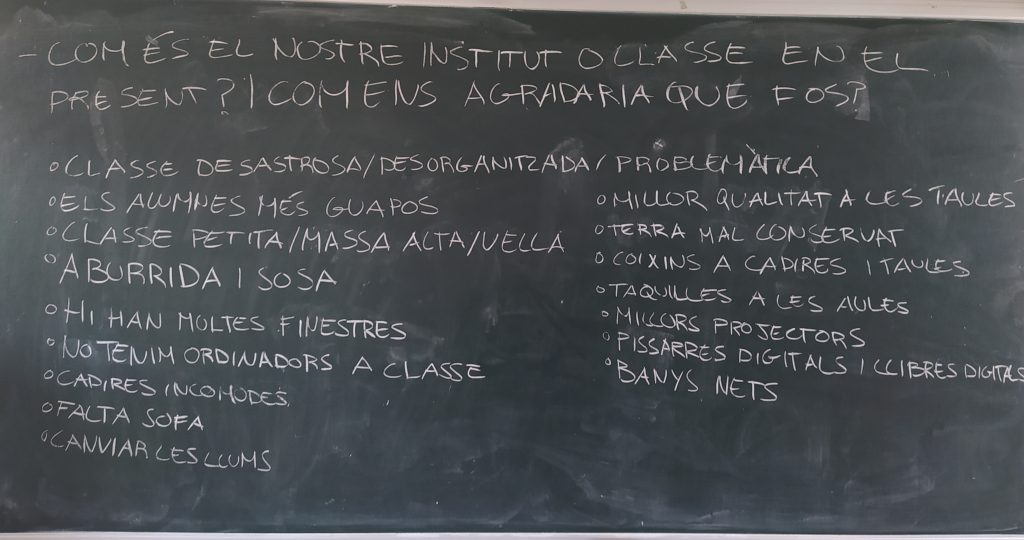 - COM ÉS EL NOSTRE INSTITUT O CLASSE EN EL
PRESENT? I COM ENS AGRADARIA QUE FOS?
° CLASSE DESASTROSA/DESORGANITZADA/PROBLEMÀTICA
° ELS ALUMNES MÉS GUAPOS
° CLASSE PETITA/MASSA ALTA/VELLA
° ABURRIDA I SOSA
° HI HAN MOLTES FINESTRES
° NO TENIM ORDINADORS A CLASSE
° CADIRES INCOMODES
° FALTA SOFA
° CANVIAR LES LLUMS
° MILLOR QUALITAT A LES TAULES
° TERRA MAL CONSERVAT
° COIXINS A CADIRES I TAULES
° TAQUILLES A LES AULES
° MILLORS PROJECTORS
° PISSARRES DIGITALS I LLIBRES DIGITALS
° BANYS NETS